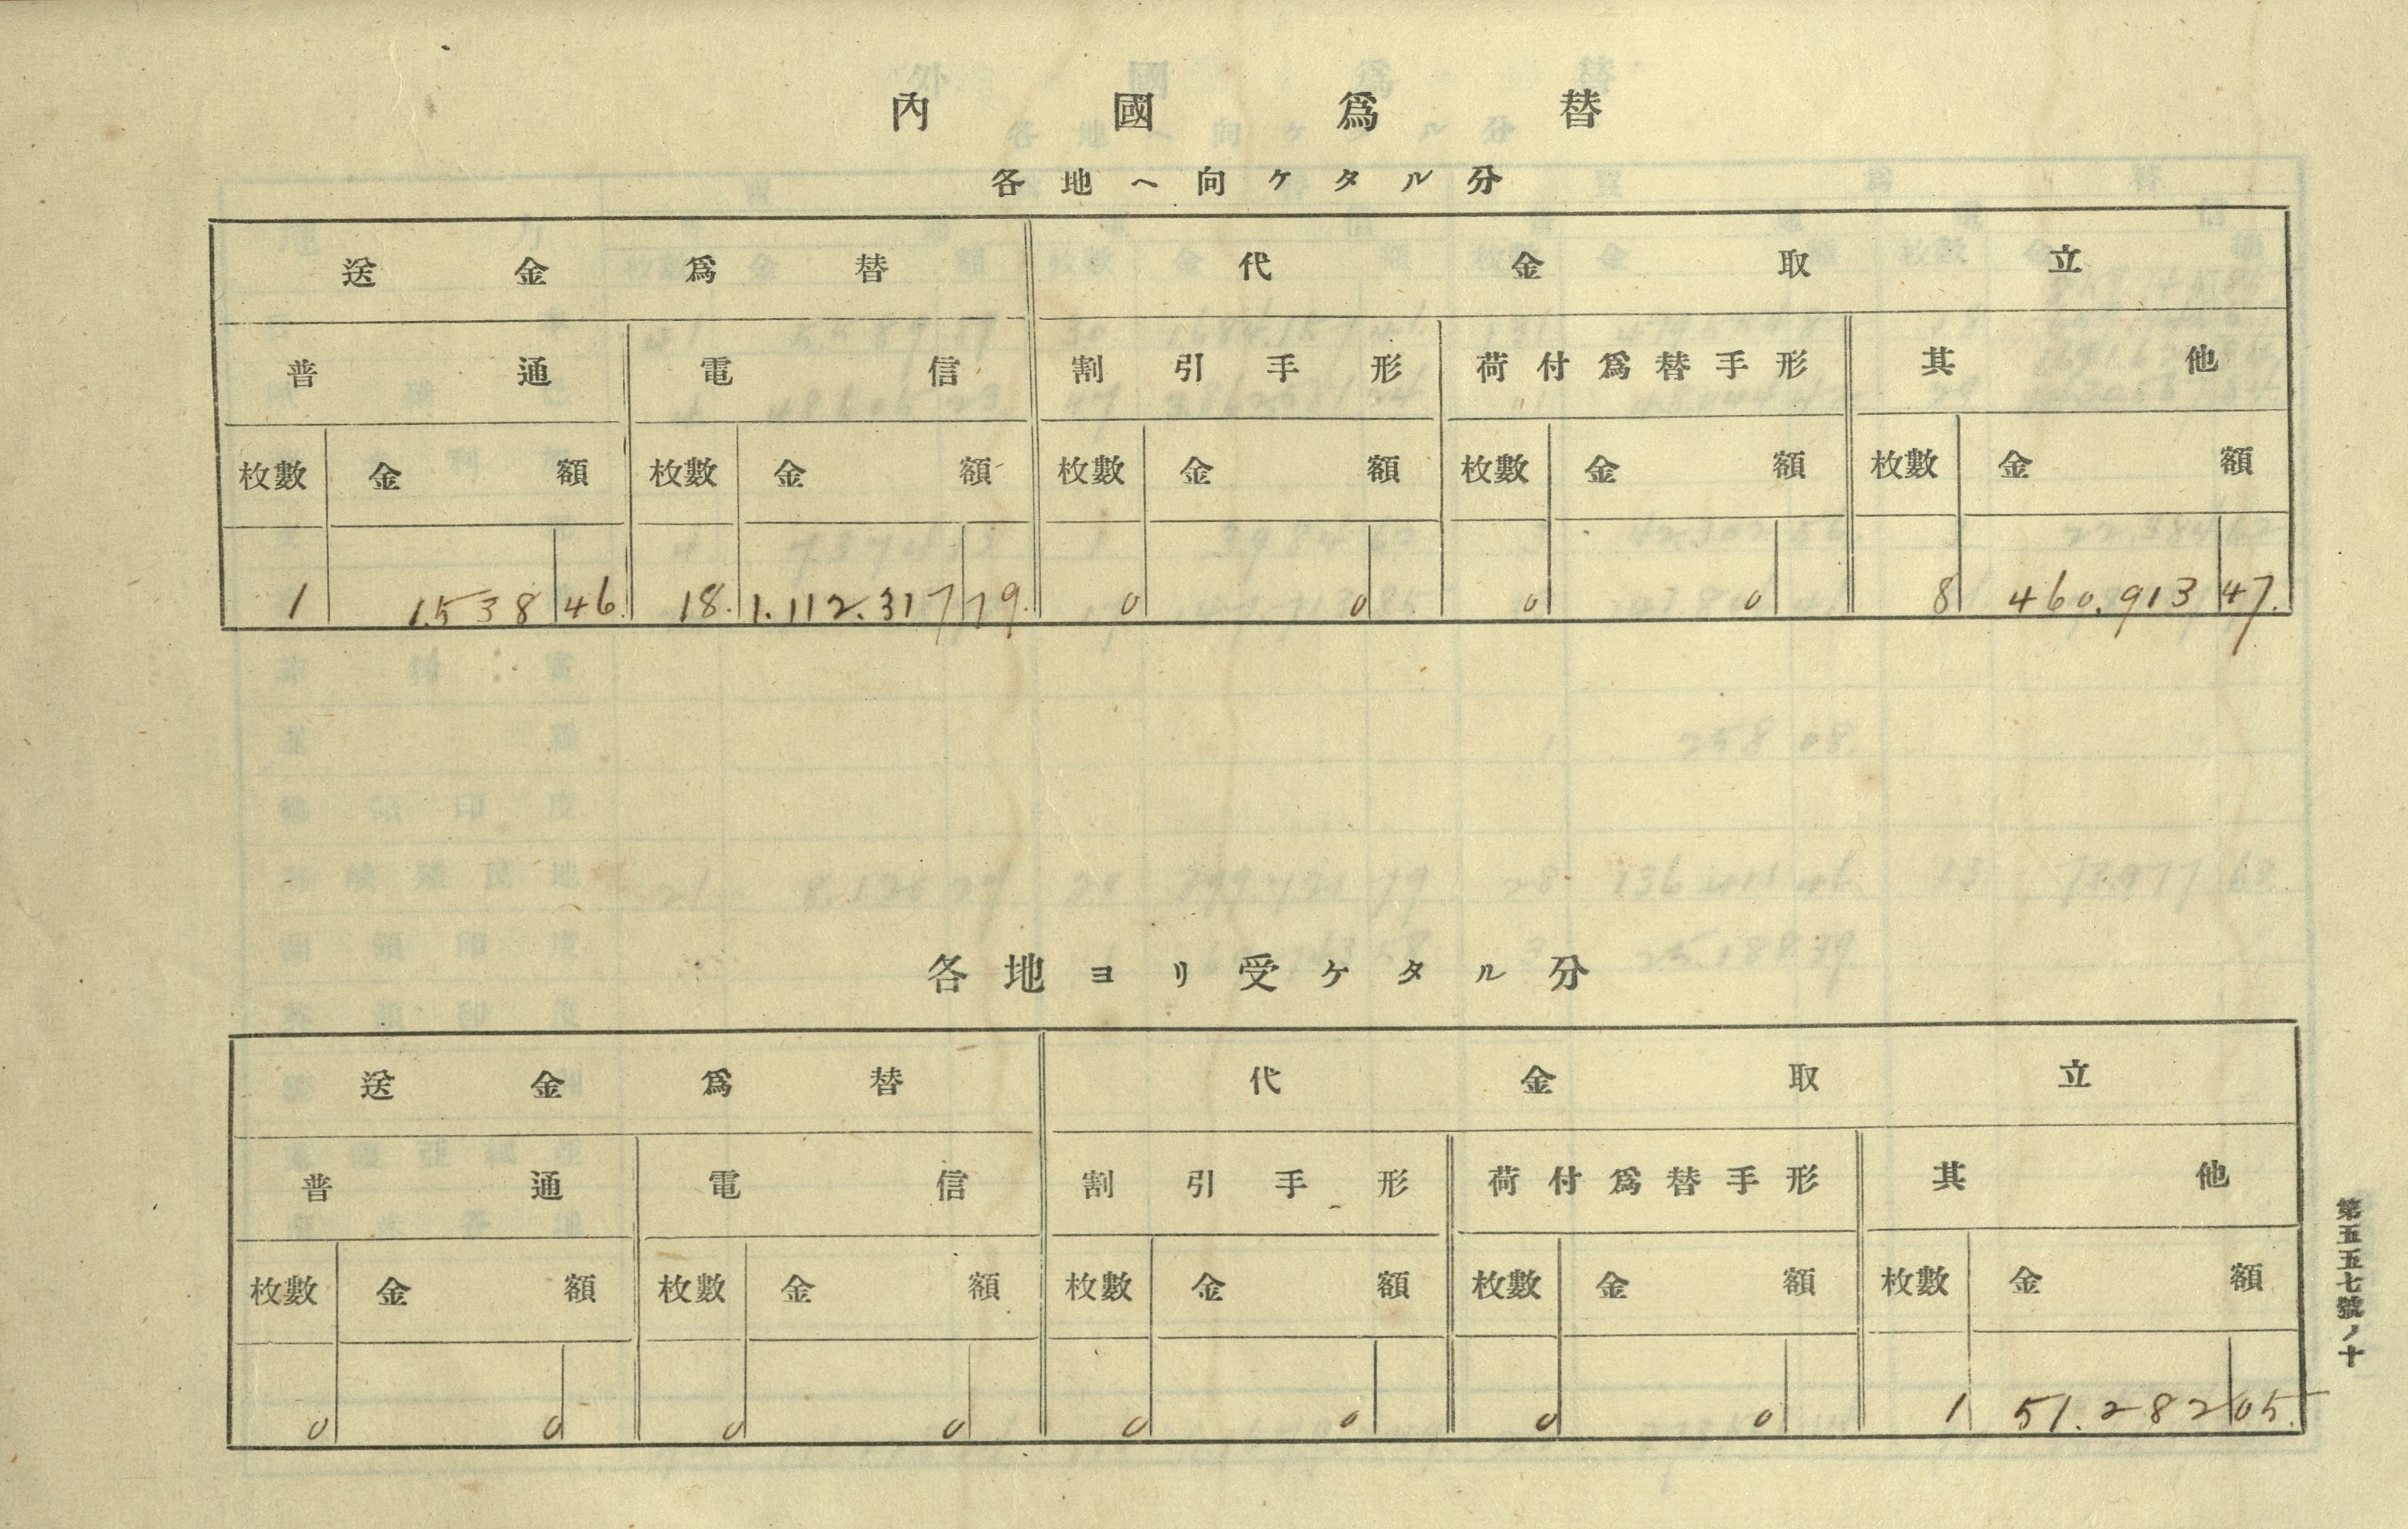 內國爲替
各地ヘ向ケタル分
送金爲替 代金取立
普通 電信 割引手形 荷付爲替手形 其他
枚數 金額 枚數 金額 枚數 金額 枚數 金額 枚數 金額
1 1.538 46. 18. 1.112.317 79. 0 0 0 0 8 460.913 47.
各地ヨリ受ケタル分
送金爲替 代金取立
普通 電信 割引手形 荷付爲替手形 其他
枚數 金額 枚數 金額 枚數 金額 枚數 金額 枚數 金額
0 0 0 0 0 0 0 0 1 51.282 05.
第五五七號ノ十